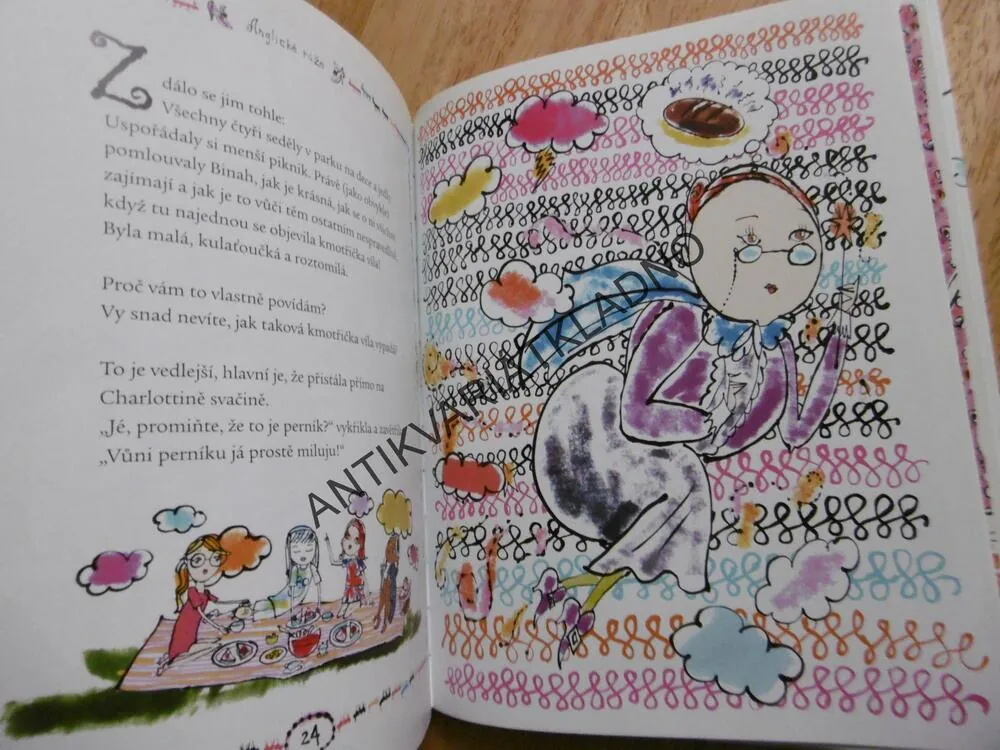 Anglické růže
Zdálo se jim tohle:
Všechny čtyři seděly v parku na dece a jedly.
Uspořádaly si menší piknik. Právě (jako obvykle)
pomlouvaly Binah, jak je krásná, jak se o ni všichni
zajímají a jak je to vůči těm ostatním nespravedlivé,
když tu najednou se objevila kmotřička víla!
Byla malá, kulaťoučká a roztomilá.
Proč vám to vlastně povídám?
Vy snad nevíte, jak taková kmotřička víla vypadá?
To je vedlejší, hlavní je, že přistála přímo na
Charlottině svačině.
„Jé, promiňte, že to je perník?“ vykřikla a
„Vůni perníku já prostě miluju!“
24
ANTIKVARIÁT KLADNO